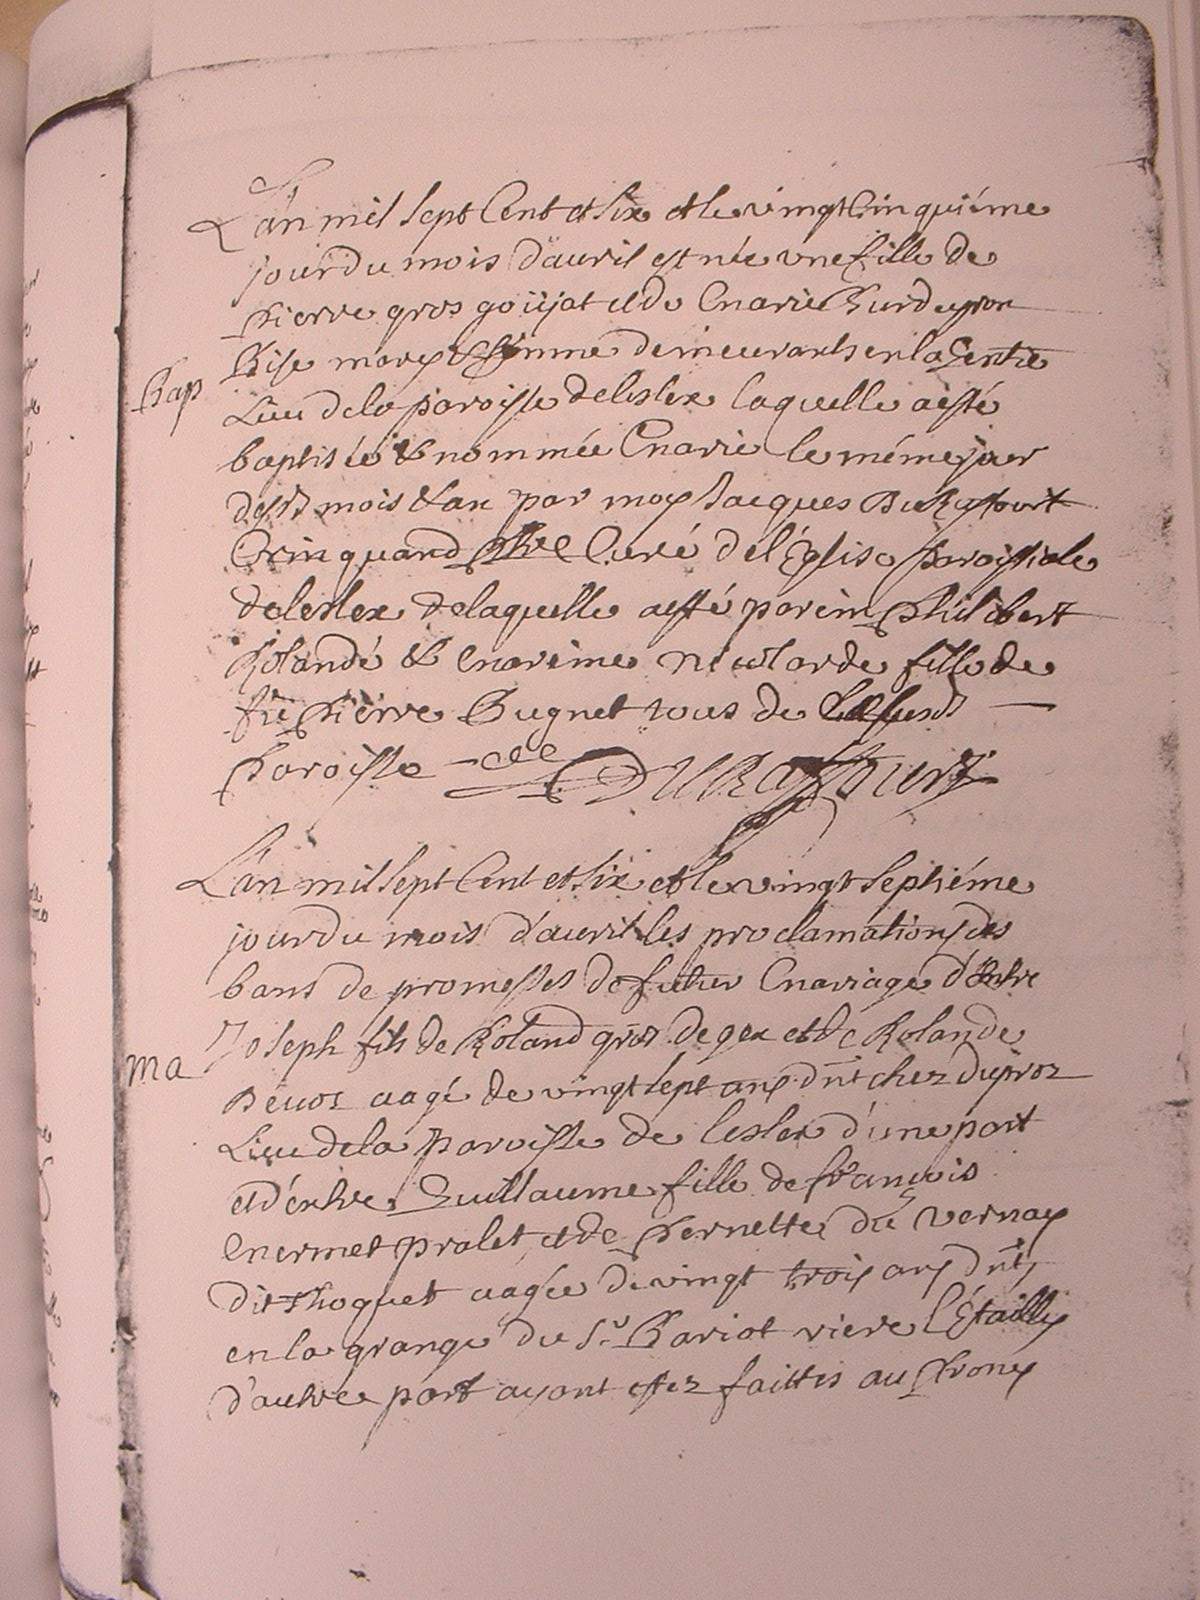 L'an mil sept Cent et six et le vingt Cinquiéme
jour du mois d'auril est née vne fille de
Pierre gros goüjat et de Marie Burdeyron
Bise maryes & femme demeurants en la
Bap
Lieu de la paroisse de leslex laquelle a esté
baptisée & nommée Marie le méme jour
desd mois & an par moy Jacques Duraffourt
Crinquand pbre Curé de l'Eglise paroissiale
de leslex de laquelle a esté parein Philibert
Rolande & mareine fille de
feu Pierre Bugnet tous de
Paroisse DURAffourt
L'an mil sept Cent et six et le vingt septiéme
jour du mois d'auril les proclamations des
bans de promesses de futur Mariage d'Entre
Joseph fils de Roland gros de gex et de Rolande
ma
aagé de vingt sept ans dnt chez duproz
Lieu de la paroisse de leslex d'une part
et d'entre Guillaume fille de françois
Mermet pralet et de Pernette du Vernay
dit Thoquet aagée de vingt trois ans dnte
en la grange du Sr Bariot riere l'Etailly
d'autre part ayant estez faittes au Prony